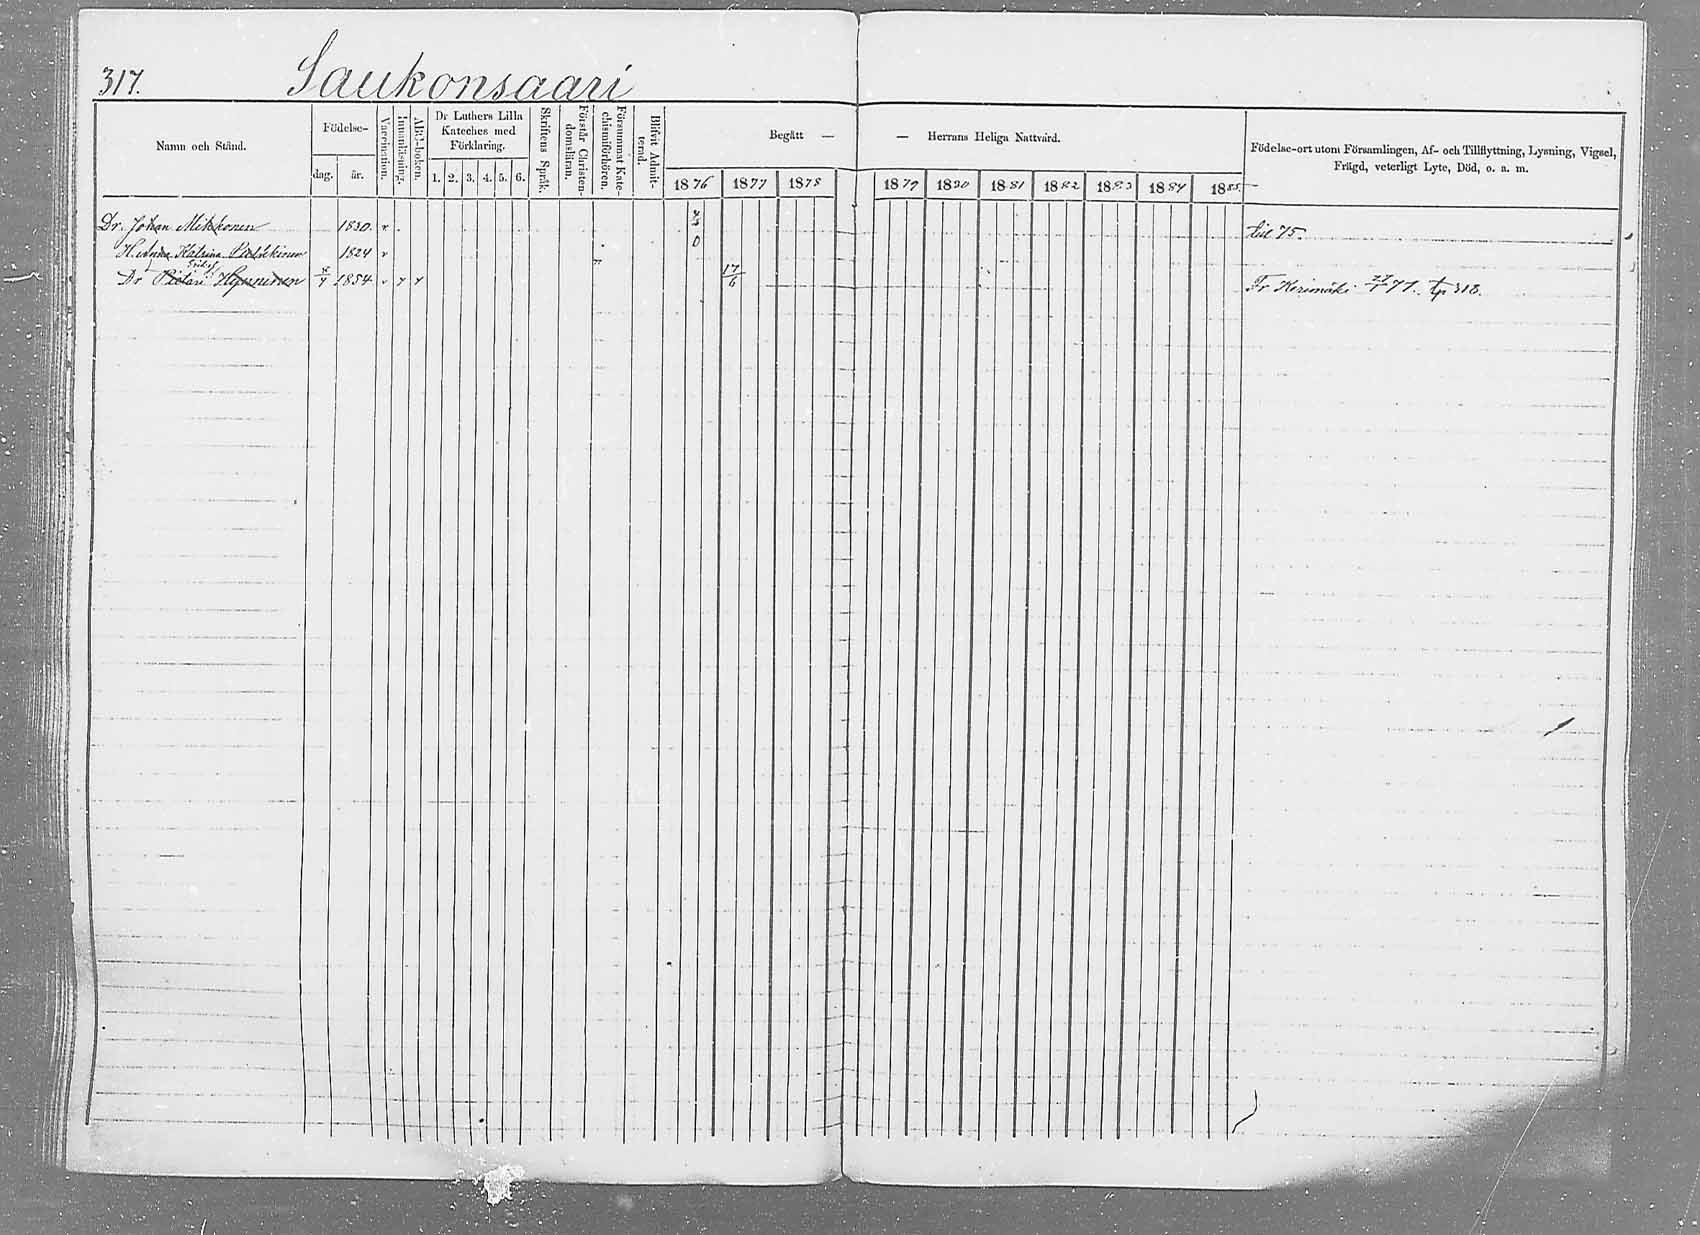 317. Saukonsaari
Namn och Stånd.
Födelse-
dag.
år.
Vaccination.
Innanläsning.
ABC-boken.
Dr Luthers Lilla
Kateches med
Förklaring.
1. 2. 3. 4. 5. 6.
Skriftens Språk.
Förstår Christen-
domsläran.
Försummat Kate-
chismiförhören.
Blifvit Admit-
terad.
Begått —
— Herrans Heliga Nattvard.
1876 1877 1878 1879 1880 1881 1882 1883 1884 1885
Födelse-ort utom Församlingen, Af- och Tillflyttning, Lysning, Vigsel,
Frägd, veterligt Lyte, Död, o. a. m.
Dr. Johan Mikkonen 1830 v
H. Anna Katrina 1824 v 0
Dr Pietari 1854 v 17/6 Fr Kerimäki 77. tp 318.